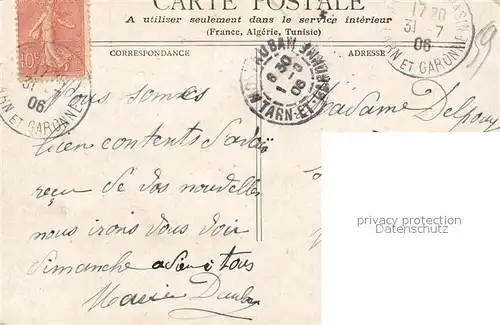 CARTE POSTALE
A utiliser seulement dans le service intérieur
(France, Algérie, Tunisie)
CORRESPONDANCE
ADRESSE
17 30
31 7
06
TARN ET GARONNE
10c
31
06
TARN ET GARONNE
MONTAUBAN
06
TARN-ET-GARONNE
59
Nous sommes
bien contents d'avoir
reçu de vos nouvelles
nous irons vous voir
dimanche adieu à tous
Marie
Madame Delpouy
privacy protection
Datenschutz